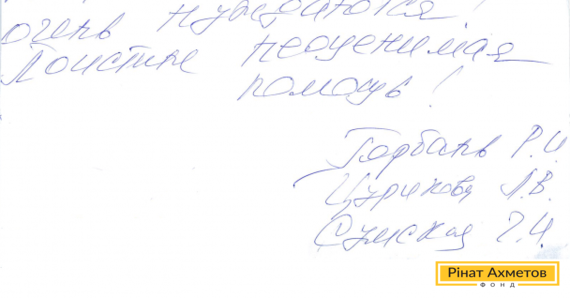 очень нуждаются!
Поистине неоценимая
помощь!
Горбань Р.И.
Цурикова Л.В.
Сумская Г.И.
Рінат Ахметов
ФОНД